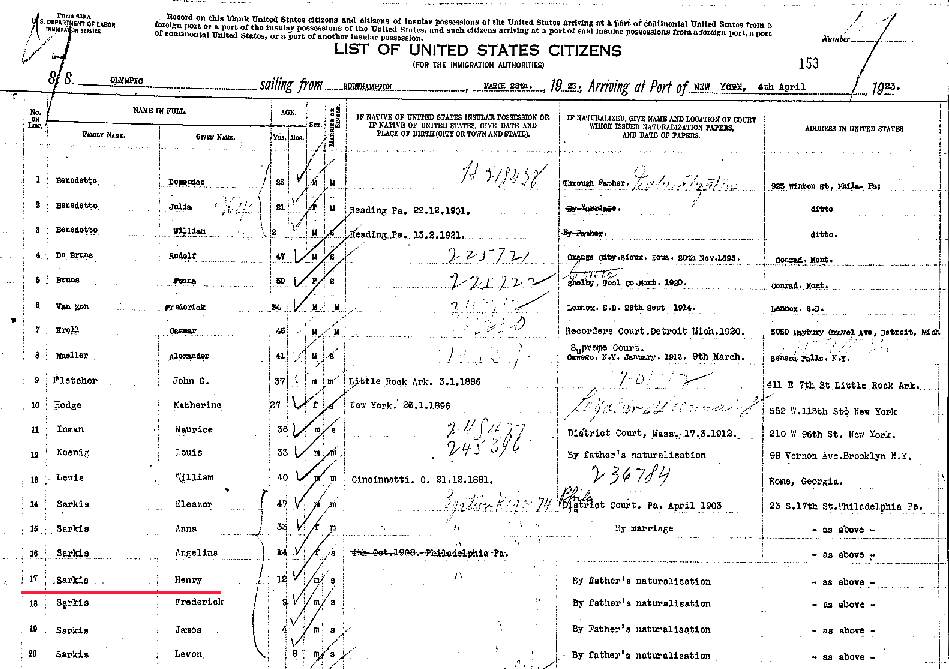 U. S. DEPARTMENT OF LABOR
IMMIGRATION SERVICE
Record on this blank United States citizens and citizens of insular possessions of the United States arriving at a port of continental United States from a
foreign port or a port of the insular possessions of the United States, and such citizens arriving at a port of said insular possessions from a foreign port, a port
of continental United States, or a port of another insular possession.
LIST OF UNITED STATES CITIZENS
(FOR THE IMMIGRATION AUTHORITIES)
153
S. S. OLYMPIC sailing from SOUTHAMPTON MARCH 28th. 1923, Arriving at Port of NEW YORK, 4th April 1923.
No. on List. NAME IN FULL. AGE. Sex. IF NATIVE OF UNITED STATES INSULAR POSSESSION OR IF NATIVE OF UNITED STATES, GIVE DATE AND PLACE OF BIRTH (CITY OR TOWN AND STATE). IF NATURALIZED, GIVE NAME AND LOCATION OF COURT WHICH ISSUED NATURALIZATION PAPERS, AND DATE OF PAPERS. ADDRESS IN UNITED STATES
Family Name. Given Name. Yrs. Mos.
1 Benedetto Domenico 25 M M Through Father. 925 St, Phila. Pa:
2 Benedetto Julia 21 F M Reading Pa. 22.12.1901. By Marriage. ditto
3 Benedetto William 2 M S Reading Pa. 13.2.1921. By Father. ditto.
4 De Brune Rudolf 47 M S 225721 Orange City. Sioux. Iowa. 20th Nov.1895. Conrad. Mont.
5 Bruns 50 S Shelby, Tool co.Month. 1920. Conrad. Mont.
6 Van Frederick M M Lennox. S.D. 28th Sept 1914. Lennox. S.D.
7 Kroll Caesar 45 M M Recorders Court.Detroit Mich.1920. Gravel Ave, Detroit, Mich
8 Mueller Alexander 41 M S Supreme Court. Oswego. N.Y. January. 1912. 9th March. Seneca Falls. N.Y.
9 Fletcher John G. 37 m m Little Rock Ark. 3.1.1886 411 E 7th St Little Rock Ark.
10 Hodge Katherine 27 f s New York. 23.1.1896 552 W.113th St; New York
11 Inman Maurice 36 m s 245477 District Court, Mass. 17.3.1912. 210 W 96th St. New York.
12 Koenig Louis 33 m m 245396 By father's naturalisation 98 Vernon Ave.Brooklyn N.Y.
13 Lewis William 40 m m Cincinnatti. O. 21.12.1881. 236784 Rome, Georgia.
14 Sarkis Eleanor 47 m m District Court. Pa. April 1903 23 S.17th St.Philadelphia Pa.
15 Sarkis Anna 35 f m " By marriage - as above -
16 Sarkis Angelina 14 f s 4th Oct.1908. Philadelphia Pa. - as above -
17 Sarkis Henry 12 m s " By father's naturalisation - as above -
18 Sarkis Frederick 9 m s By father's naturalisation - as above -
19 Sarkis James 4 m s By Father's naturalisation - as above -
20 Sarkis Levon 8 m s By father's naturalisation - as above -